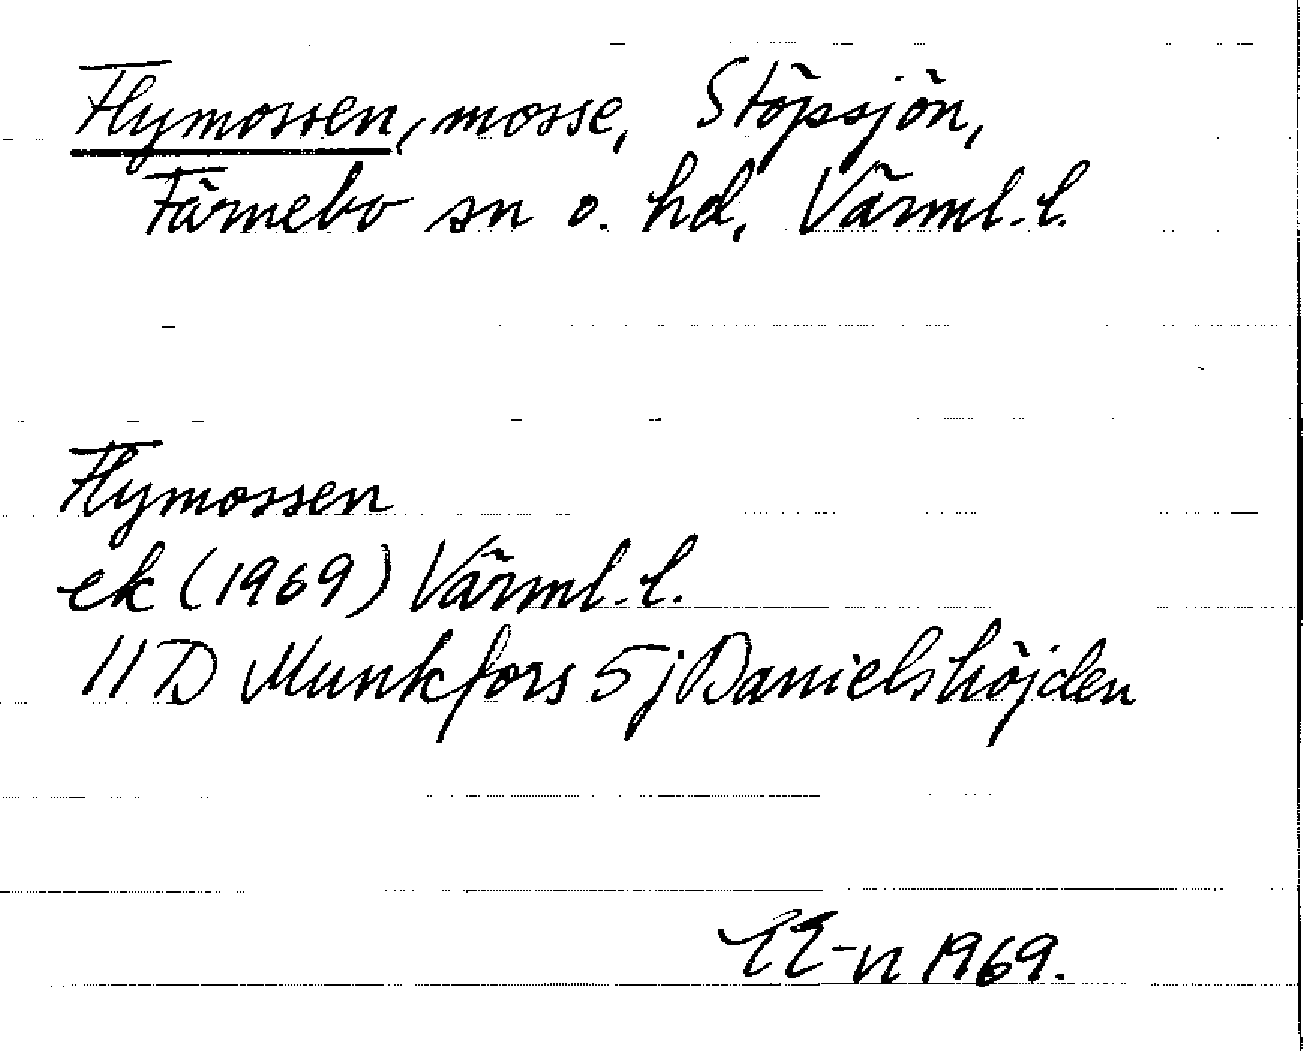 Flymossen, mosse, Stöpsjön,
Färnebo sn o. hd, Värml. l.
Flymossen
ek (1969) Värml. l.
11 D Munkfors 5 j Danielshöjden
EE-n 1969.